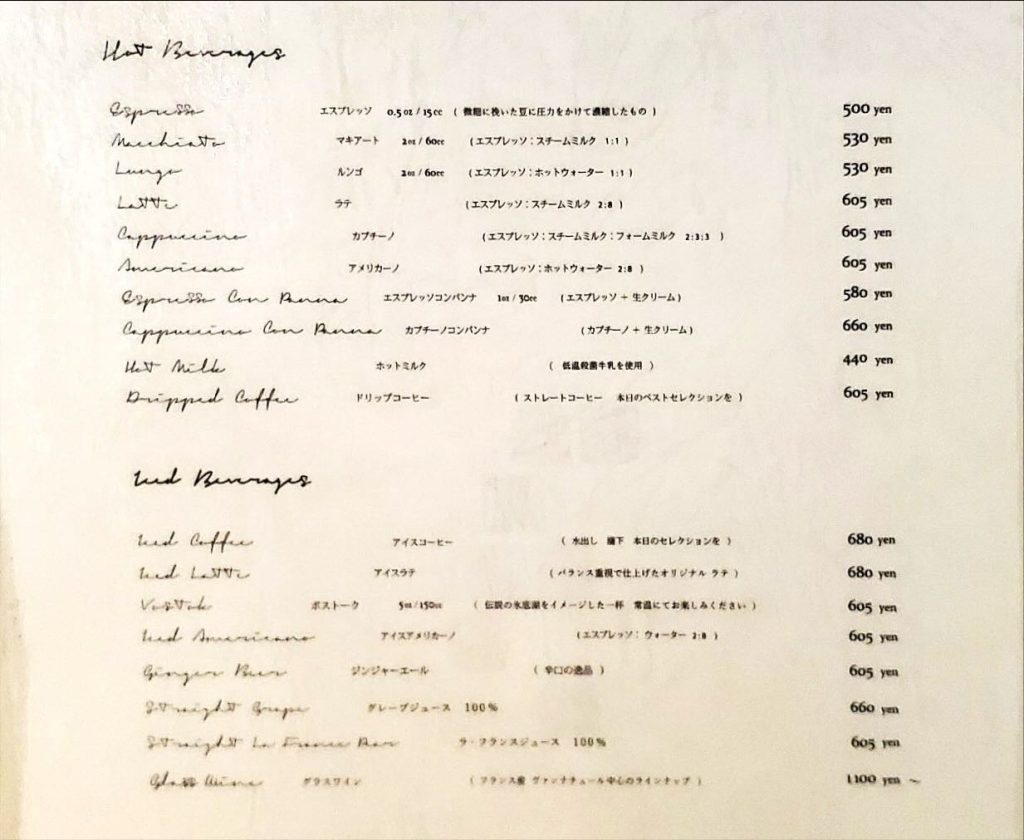 Hot Beverages
Espresso エスプレッソ 0.5 oz / 15cc ( 微細に挽いた豆に圧力をかけて濃縮したもの ) 500 yen
Macchiato マキアート 2oz / 60cc (エスプレッソ：スチームミルク 1:1 ) 530 yen
Lungo ルンゴ 2oz / 60cc (エスプレッソ：ホットウォーター 1:1 ) 530 yen
Latte ラテ (エスプレッソ：スチームミルク 2:8 ) 605 yen
Cappuccino カプチーノ (エスプレッソ：スチームミルク：フォームミルク 2:3:3 ) 605 yen
Americano アメリカーノ (エスプレッソ：ホットウォーター 2:8 ) 605 yen
Espresso Con Panna エスプレッソコンパンナ 1oz / 30cc (エスプレッソ + 生クリーム) 580 yen
Cappuccino Con Panna カプチーノコンパンナ (カプチーノ + 生クリーム) 660 yen
Hot Milk ホットミルク ( 低温殺菌牛乳を使用 ) 440 yen
Dripped Coffee ドリップコーヒー ( ストレートコーヒー 本日のベストセレクションを ) 605 yen
Iced Beverages
Iced Coffee アイスコーヒー ( 水出し 滴下 本日のセレクションを ) 680 yen
Iced Latte アイスラテ ( バランス重視で仕上げたオリジナル ラテ ) 680 yen
Vostok ボストーク 5oz / 150cc ( 伝説の氷底湖をイメージした一杯 常温にてお楽しみください ) 605 yen
Iced Americano アイスアメリカーノ (エスプレッソ：ウォーター 2:8 ) 605 yen
Ginger Beer ジンジャーエール ( 辛口の逸品 ) 605 yen
Straight Grape グレープジュース 100% 660 yen
Straight La France Pear ラ・フランスジュース 100% 605 yen
Glass Wine グラスワイン ( フランス産 ヴァンナチュール中心のラインナップ ) 1100 yen ～